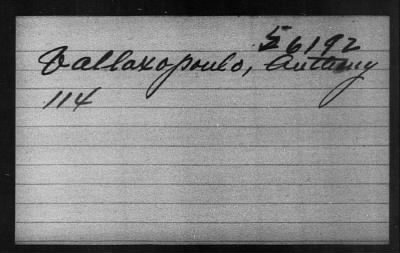 56192
Vallaxopoulo, Anthony
114